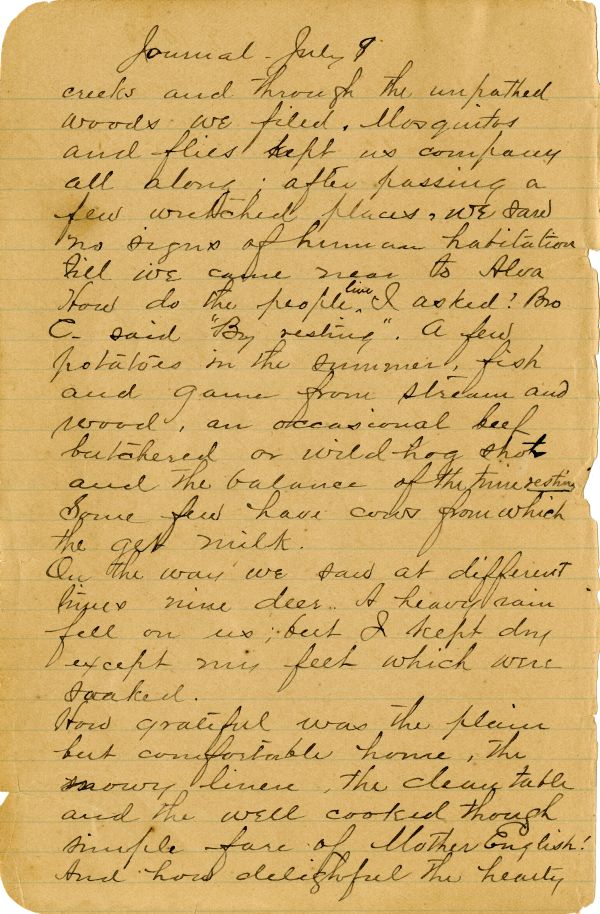 Journal - July 8
creeks and through the unpathed
woods we filed. Mosquitos
and flies kept us company
all along; after passing a
few wretched places, we saw
no signs of human habitation
till we came near to Alva
How do the people live, I asked? Bro
C- said "By resting". A few
potatoes in the summer, fish
and game from stream and
wood, an occasional beef
butchered or wild hog shot
and the balance of the time resting
Some few have cows from which
the get milk.
On the way we saw at different
times nine deer. A heavy rain
fell on us; but I kept dry
except my feet which were
soaked.
How grateful was the plain
but comfortable home, the
snowy linen, the clean table
and the well cooked though
simple fare of Mother English!
And how delightful the hearty